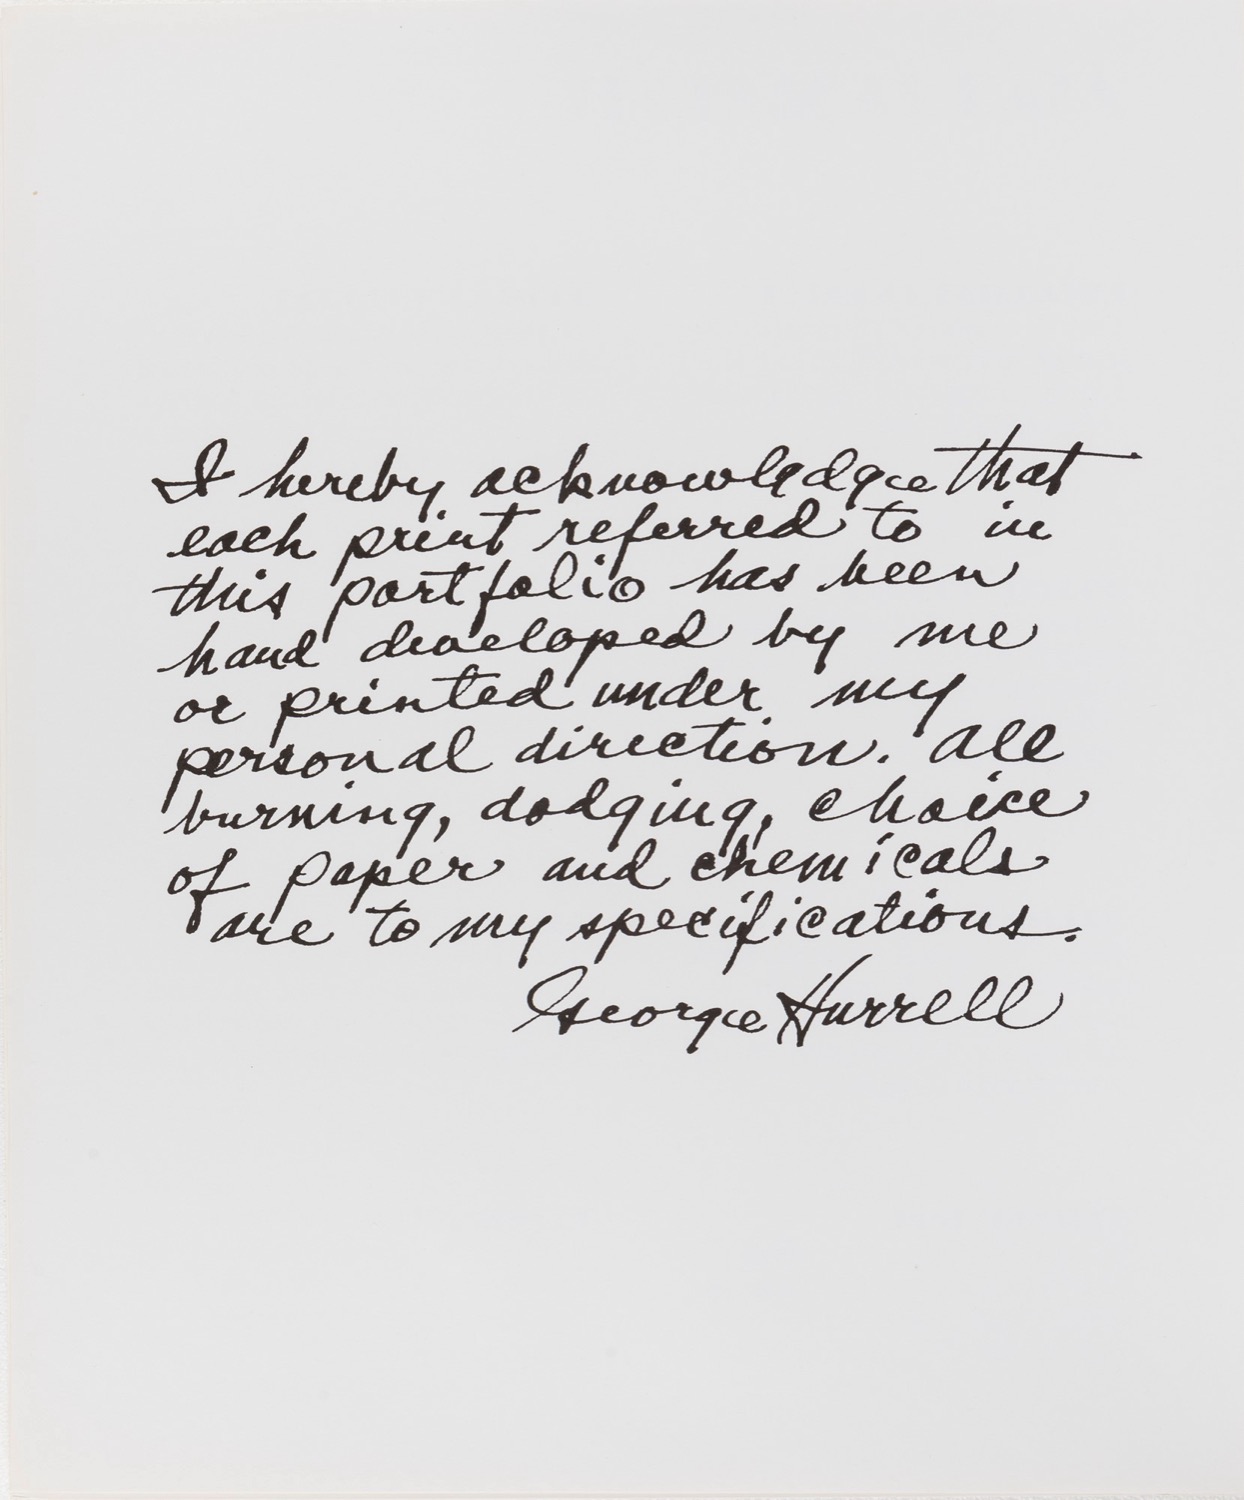 I hereby acknowledge that
each print referred to in
this portfolio has been
hand developed by me
or printed under my
personal direction. All
burning, dodging, choice
of paper and chemicals
are to my specifications.
George Hurrell